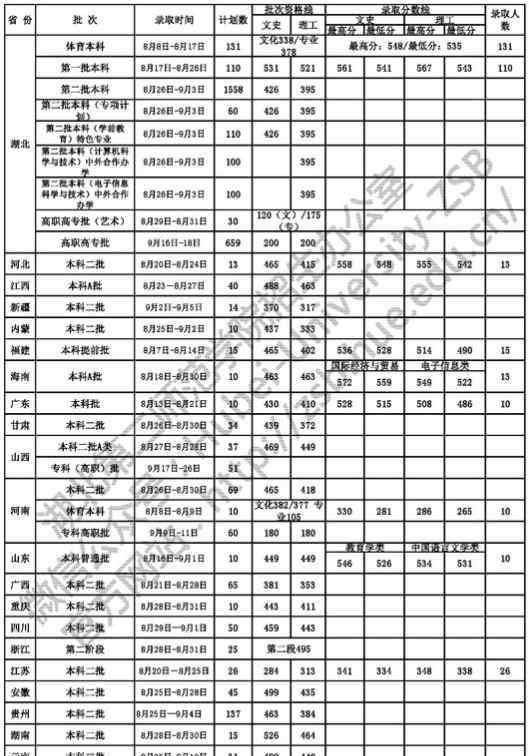 省 份 批 次 录取时间 计划数 批次资格线 录取分数线 录取人数
文史 理工 文史 理工
最高分 最低分 最高分 最低分
湖北 体育本科 8月8日-8月17日 131 文化338/专业378 最高分：548/最低分：535 131
第一批本科 8月17日-8月26日 110 531 521 561 541 567 543 110
第二批本科 8月26日-9月3日 1558 426 395
第二批本科（专项计划） 8月26日-9月3日 60 426 395
第二批本科（学前教育）特色专业 8月26日-9月3日 110 426 395
第二批本科（计算机科学与技术）中外合作办学 8月26日-9月3日 100 395
第二批本科（电子信息科学与技术）中外合作办学 8月26日-9月3日 100 395
高职高专批（艺术） 8月29日-8月31日 30 120（文）/175（专）
高职高专批 9月16日-18日 659 200 200
河北 本科二批 8月20日-8月24日 13 465 415 558 548 555 542 13
江西 本科A批 8月23—8月27日 40 488 463
新疆 本科二批 9月2日-9月5日 14 370 317
内蒙 本科二批 8月25日-9月2日 10 437 333
福建 本科提前批 8月7日-8月14日 15 465 402 536 528 514 490 15
海南 本科A批 8月18日-8月30日 10 463 463 国际经济与贸易 电子信息类 13
572 559 549 522
广东 本科批 8月13日-8月21日 10 430 410 528 515 508 486 10
甘肃 本科二批 8月26日-8月30日 34 439 372
山西 本科二批A类 8月27日-8月28日 37 469 449
专科（高职）批 9月17日-26日 51
河南 本科二批 8月26日-8月30日 69 465 418
体育本科 8月8日-8月9日 10 文化382/377 专业105 330 281 286 265 10
专科高职批 9月9日-11日 60 180 180
山东 本科普通批 8月16日-9月1日 10 449 449 教育学类 中国语言文学类 10
546 526 534 531
广西 本科二批 8月21日-8月28日 65 381 353
重庆 本科二批 8月28日-8月31日 10 443 411
四川 本科二批 8月29日—9月1日 50 459 443
浙江 第二阶段 8月28日-8月31日 25 第二段495
江苏 本科二批 8月20日—8月25日 26 284 313 341 334 348 338 26
安徽 本科二批 8月25日-8月28日 45 499 435
贵州 本科二批 8月25日—9月4日 137 463 384
湖南 本科二批 8月28日-8月30日 15 526 464
湖北第二师范学院招生办公室
微信公众号：Hubei-University-ZSB
官方网站：http://zsb.hue.edu.cn/